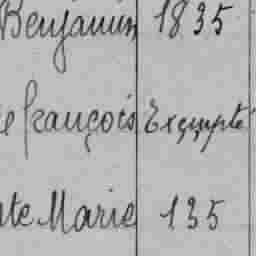 Benjamin 1835
e françois Exempte
te Marie 135